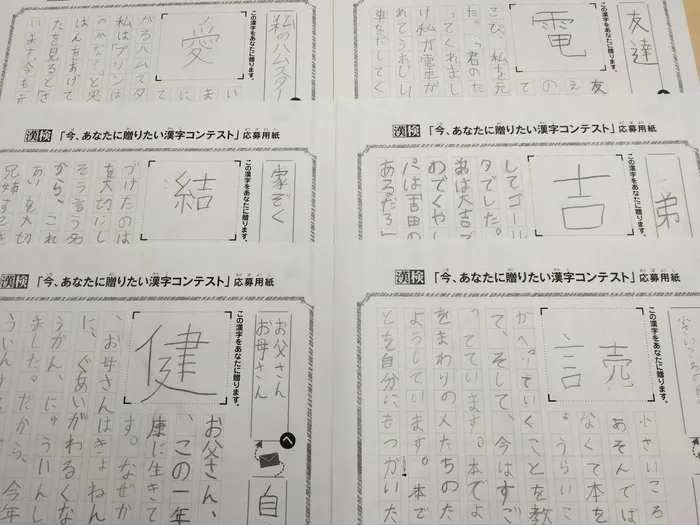 私のハムスター
この漢字をあなたに贈ります。
愛
いま
に
て
がるハムスタ
私は「プリンは
のかな」と思
はんをあげて
たを見るとな
います。今も元
友達
この漢字をあなたに贈ります。
電
友
え
の
て
こび、私を元
た。「君のた
ってくれまし
け私が電車が
れてうれしい
車をだしてく
漢検 「今、あなたに贈りたい漢字コンテスト」応募用紙
家ぞく
この漢字をあなたに贈ります。
結
づけたのは
を大切にし
そう言う名
から、これ
あいを大切
兄姉すてき
漢検 「今、あなたに贈りたい漢字コンテスト」応募用紙
弟
この漢字をあなたに贈ります。
吉
してゴール
タでした。
弟は大吉
のでくやし
パは「吉田の
あるだろ」
漢検 「今、あなたに贈りたい漢字コンテスト」応募用紙
お父さん
お母さん
へ
自
この漢字をあなたに贈ります。
健
お父さん、
、この一年
康に生きて
す。なぜか
、お母さんはきょねん
に、ぐあいがわるくな
うかん、にゅういんし
ました。だから、今年
ういんは
漢検 「今、あなたに贈りたい漢字コンテスト」応募用紙
小さいころの
この漢字をあなたに贈ります。
読
小さいころ
あそんでは
なくて本を
ょうらいこ
がへっていくことを教
て、そして、今はすご
ってています。本でよ
をまわりの人たちのた
ようしています。本で
とを自分にもつかいた